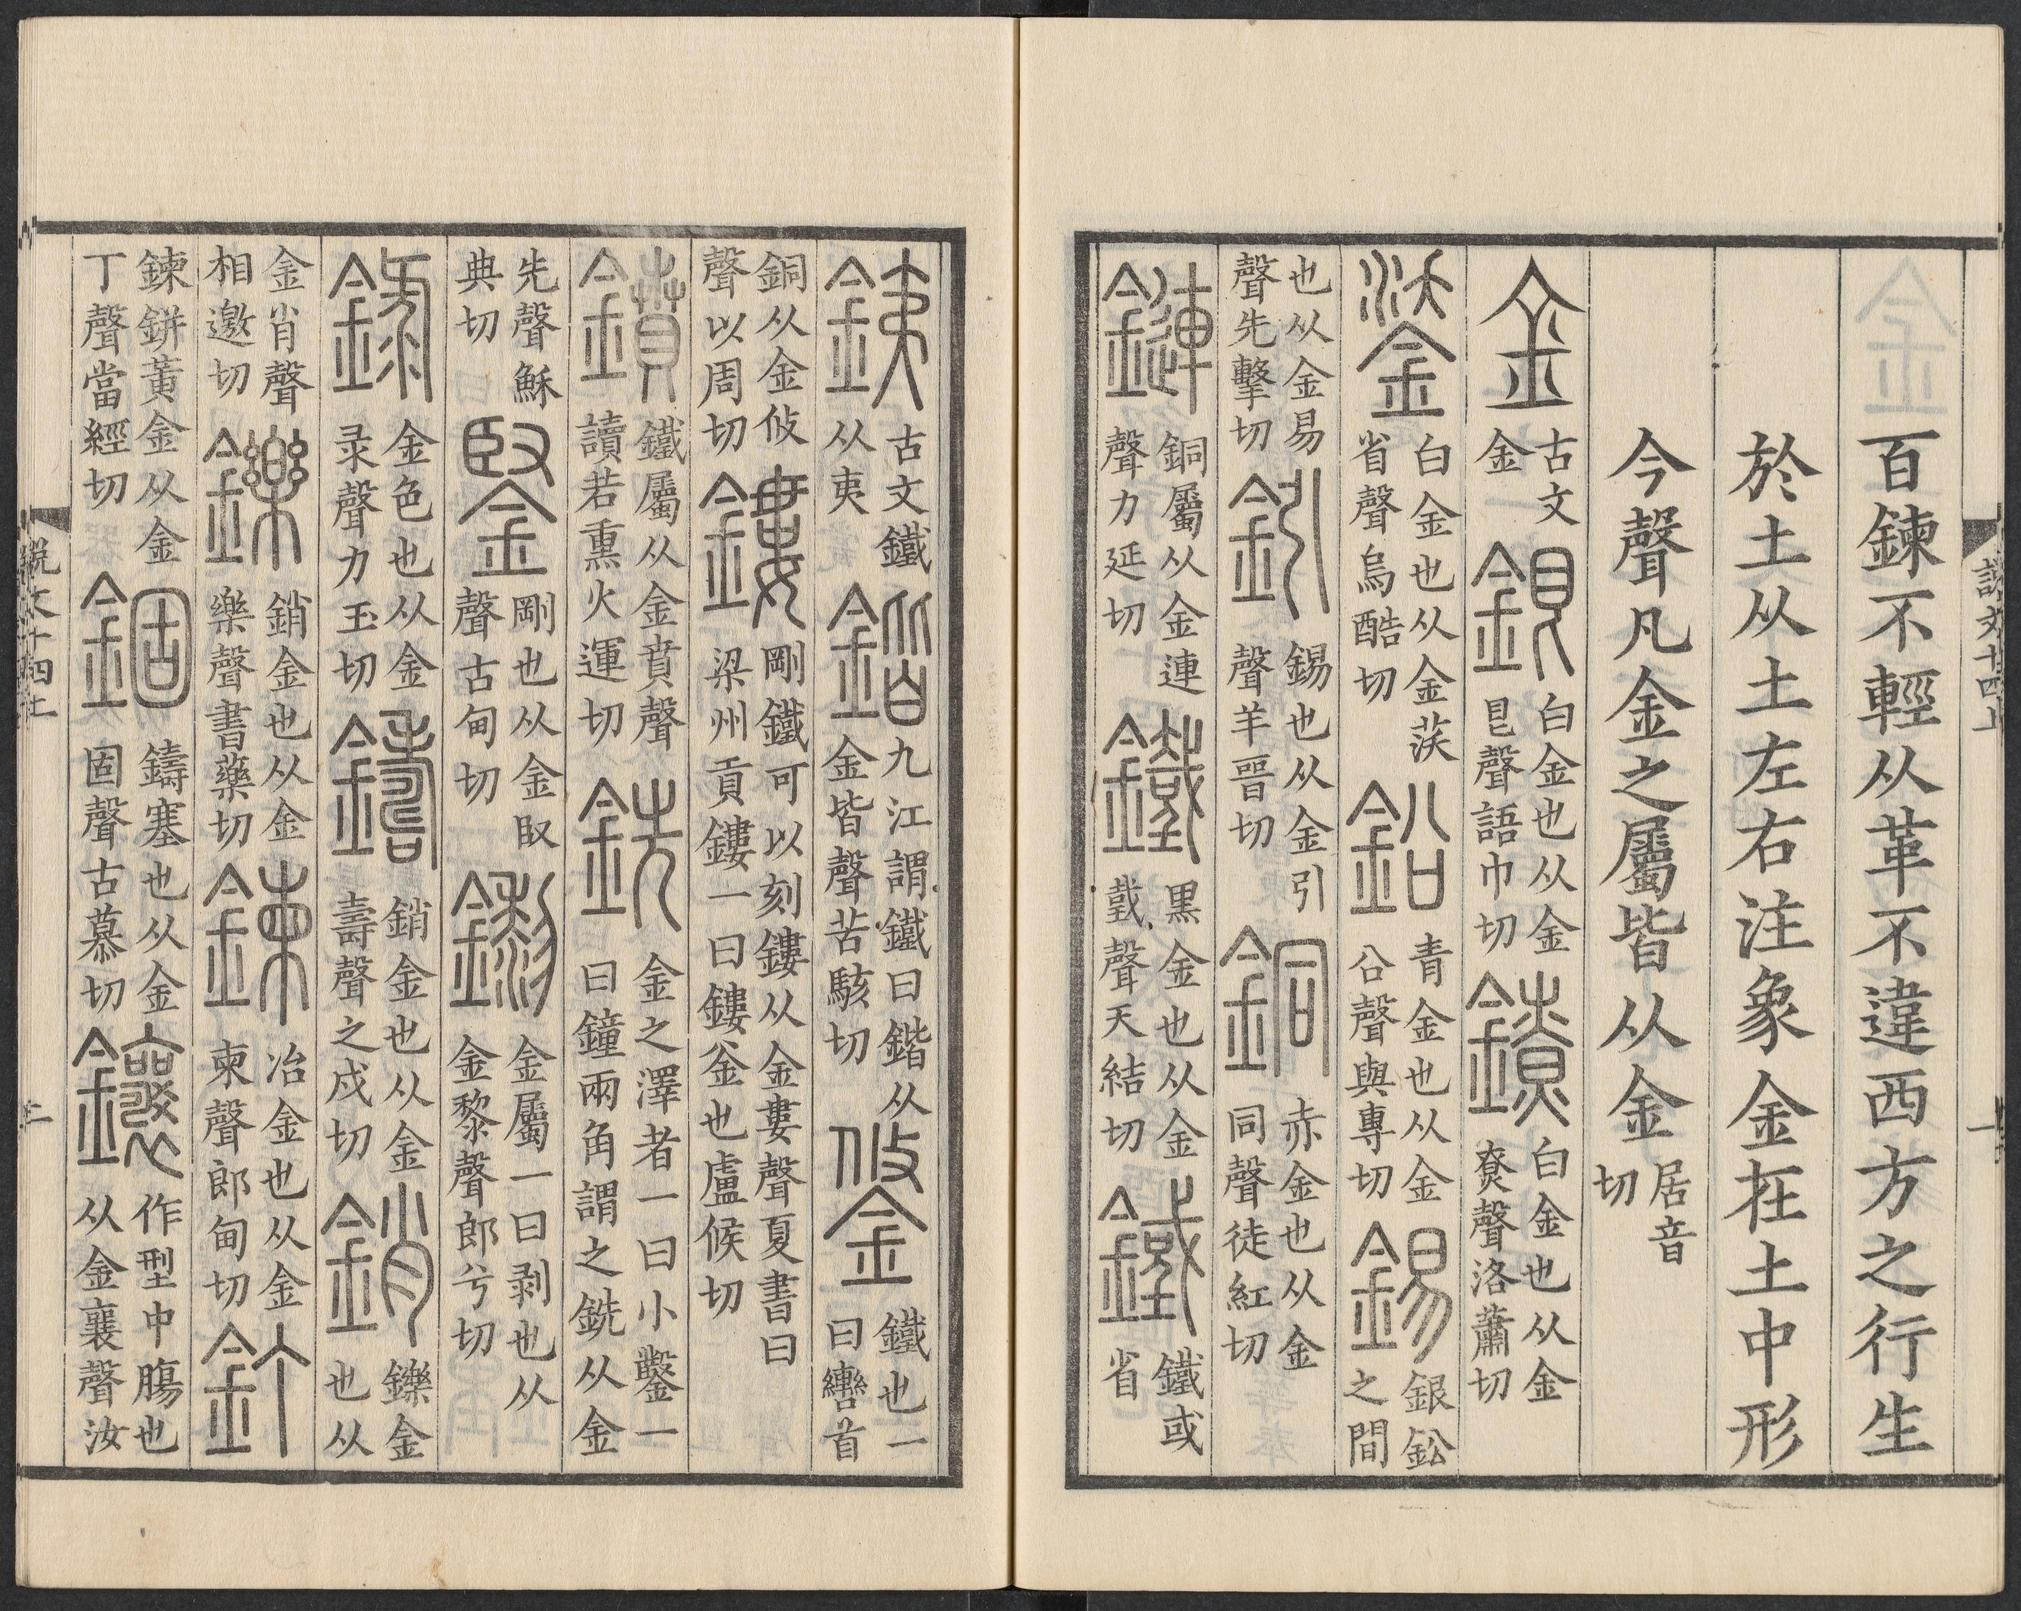 說文十四上 一
百鍊不輕从革不違西方之行生
於土从土左右注象金在土中形
今聲凡金之屬皆从金居音切
金古文金銀白金也从金㿝聲語巾切鐐白金也从金尞聲洛蕭切
鋈白金也从金䒬省聲烏酷切鉛青金也从金㕣聲與專切錫銀鈆之間
也从金易聲先擊切鈏錫也从金引聲羊晉切銅赤金也从金同聲徒紅切
鏈銅屬从金連聲力延切鐵黑金也从金𢧜聲天結切䥫鐵或省
銕古文鐵从夷鍇九江謂鐵曰鍇从金皆聲苦駭切鋚鐵也一曰轡首
銅从金攸聲以周切鏤剛鐵可以刻鏤从金婁聲夏書曰梁州貢鏤一曰鏤釜也盧候切
鐼鐵屬从金賁聲讀若熏火運切銑金之澤者一曰小鑿一曰鐘兩角謂之銑从金
先聲穌典切鋻剛也从金臤聲古甸切鑗金屬一曰剥也从金黎聲郎兮切
錄金色也从金录聲力玉切鑄銷金也从金壽聲之戍切銷鑠金也从
金肖聲相邀切鑠銷金也从金樂聲書藥切鍊冶金也从金柬聲郎甸切釘
鍊鉼黃金从金丁聲當經切錮鑄塞也从金固聲古慕切鑲作型中膓也从金襄聲汝
說文十四上 二